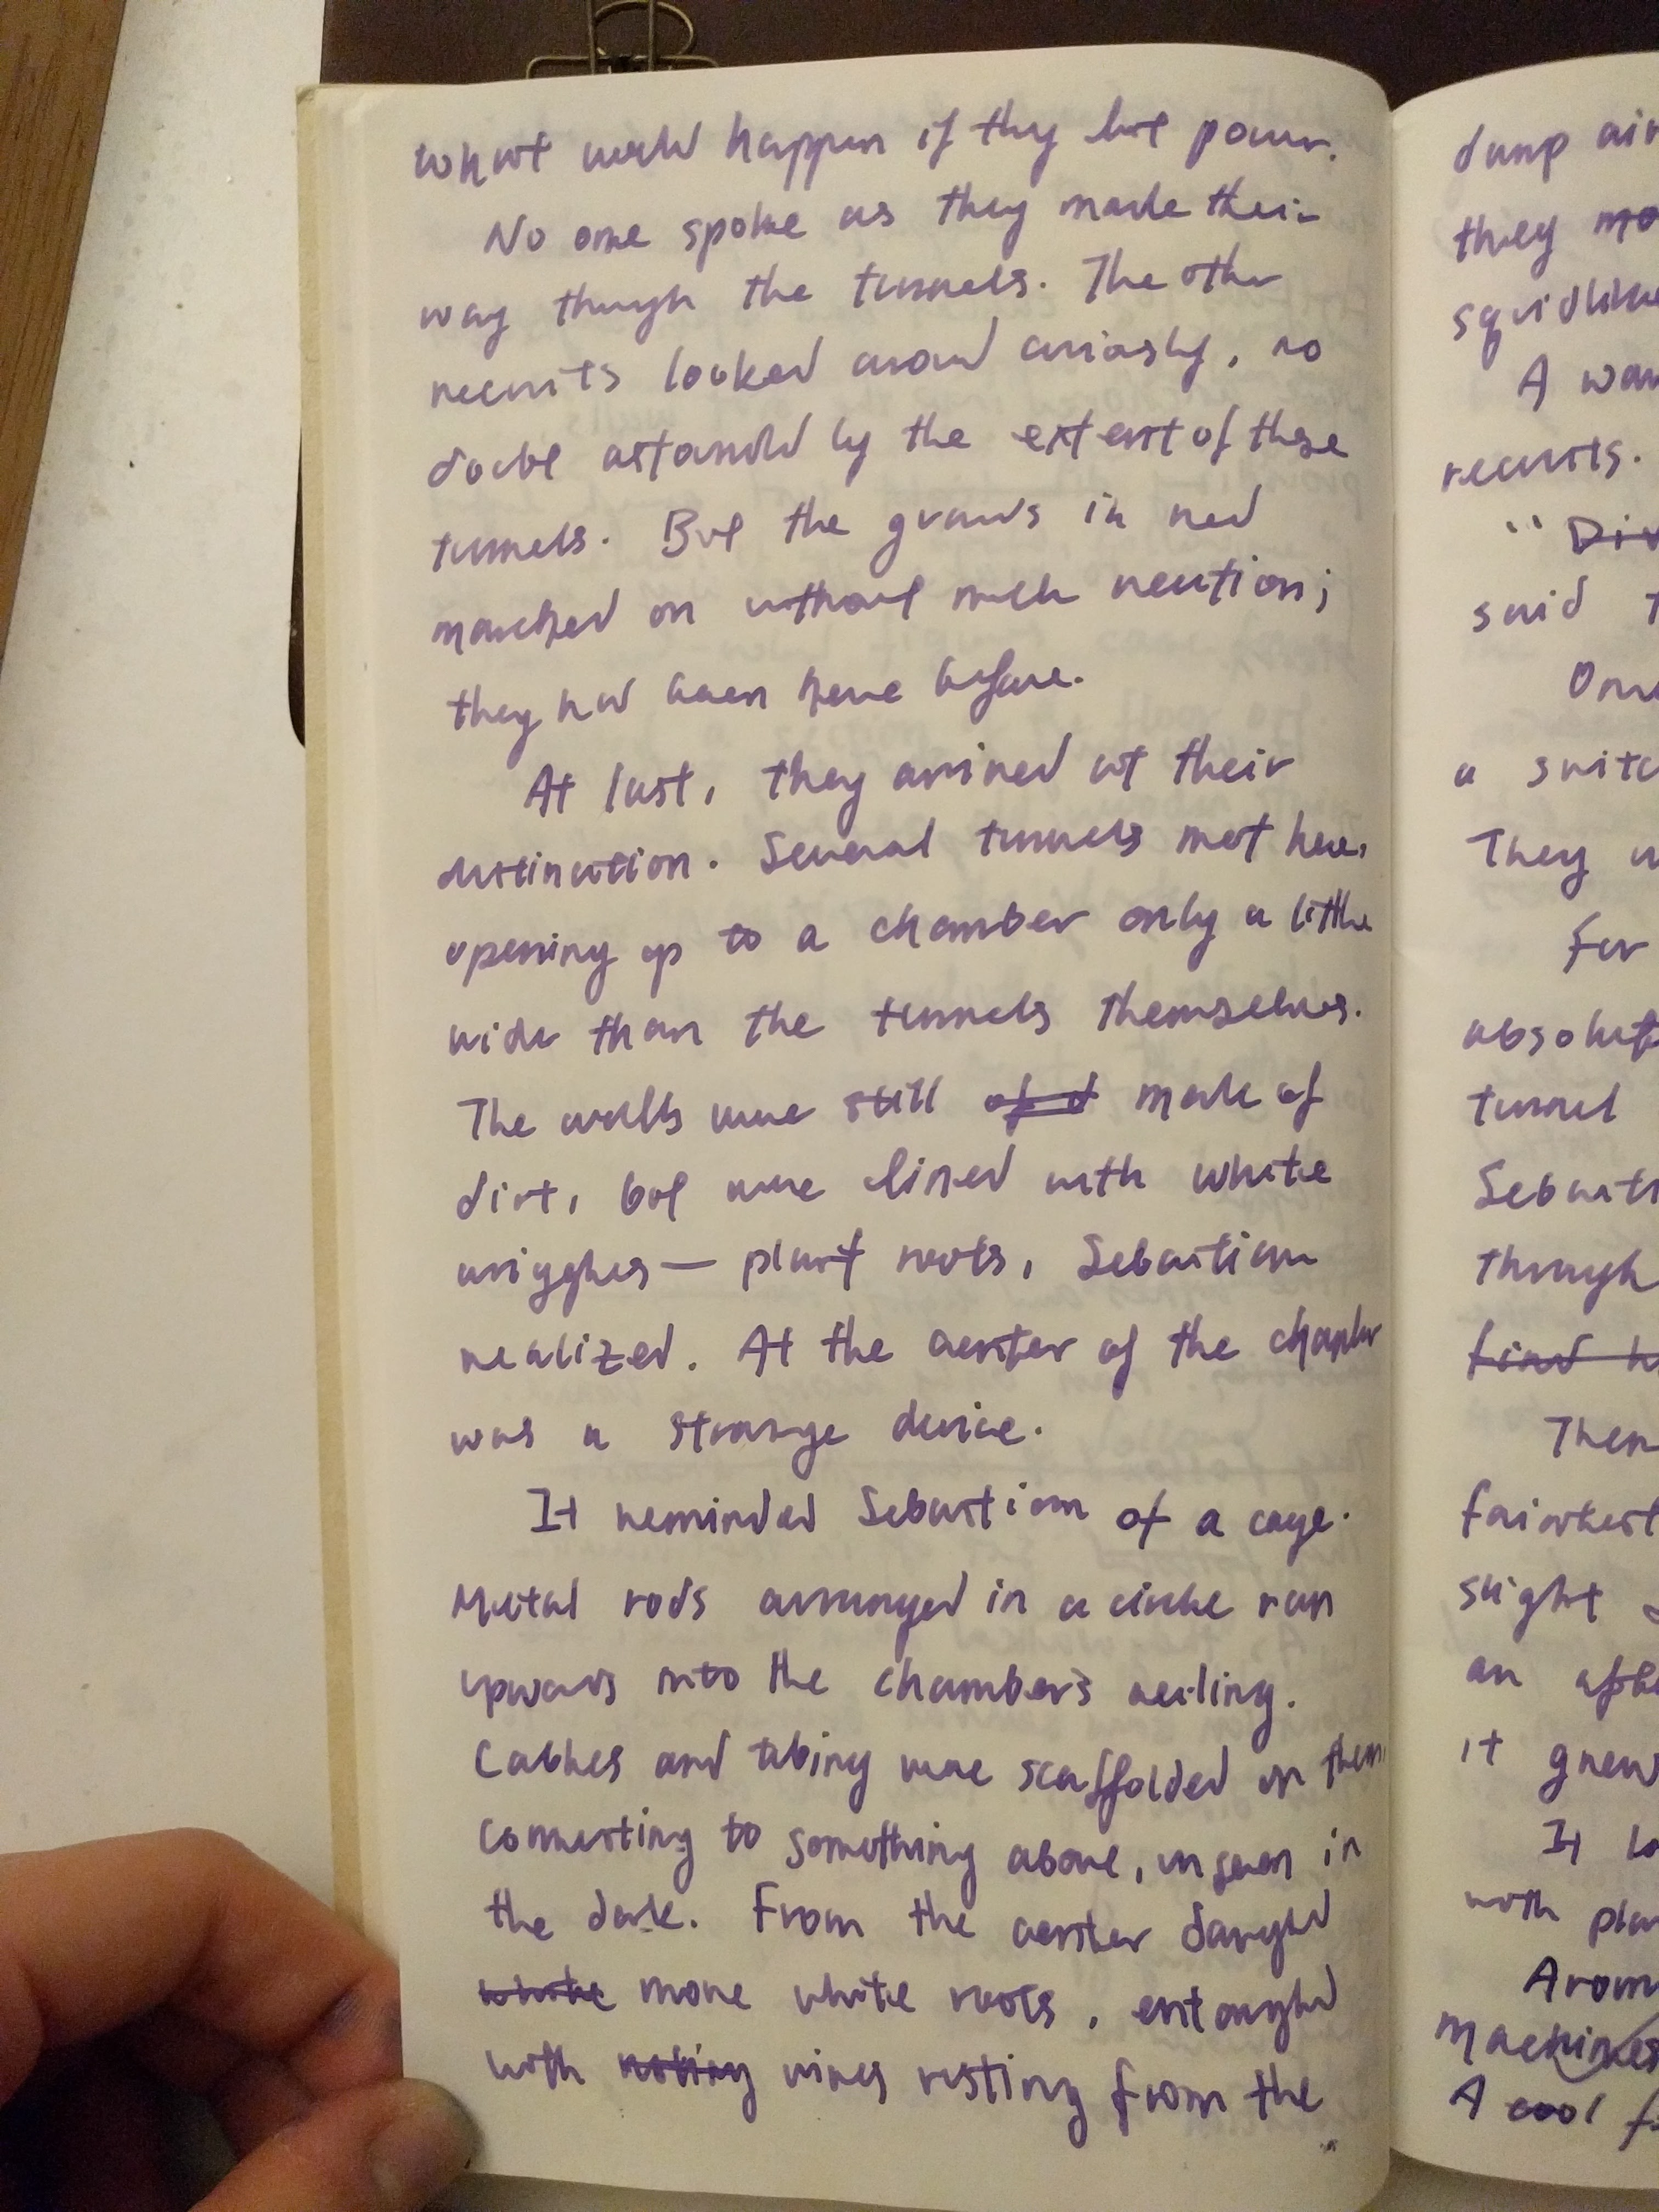 what would happen if they lost power.
No one spoke as they made their
way though the tunnels. The other
recruits looked around curiously, no
doubt astounded by the extent of these
tunnels. But the guards in red
marched on without much reaction;
they had been here before.
At last, they arrived at their
destination. Several tunnels met here,
opening up to a chamber only a little
wider than the tunnels themselves.
The walls were still made of
dirt, but were lined with white
wriggles — plant roots, Sebastian
realized. At the center of the chamber
was a strange device.
It reminded Sebastian of a cage.
Metal rods arranged in a circle ran
upwards into the chamber's ceiling.
Cables and tubing were scaffolded on them,
connecting to something above, unseen in
the dark. From the center dangled
white more white roots, entangled
with vines resting from the
damp air
they
squidlike
A
recruits.
"
said
a
They
For
absolut
tunnel
Sebasti
through
find
Then
slight
an
it grew
It
with
machines
A cool